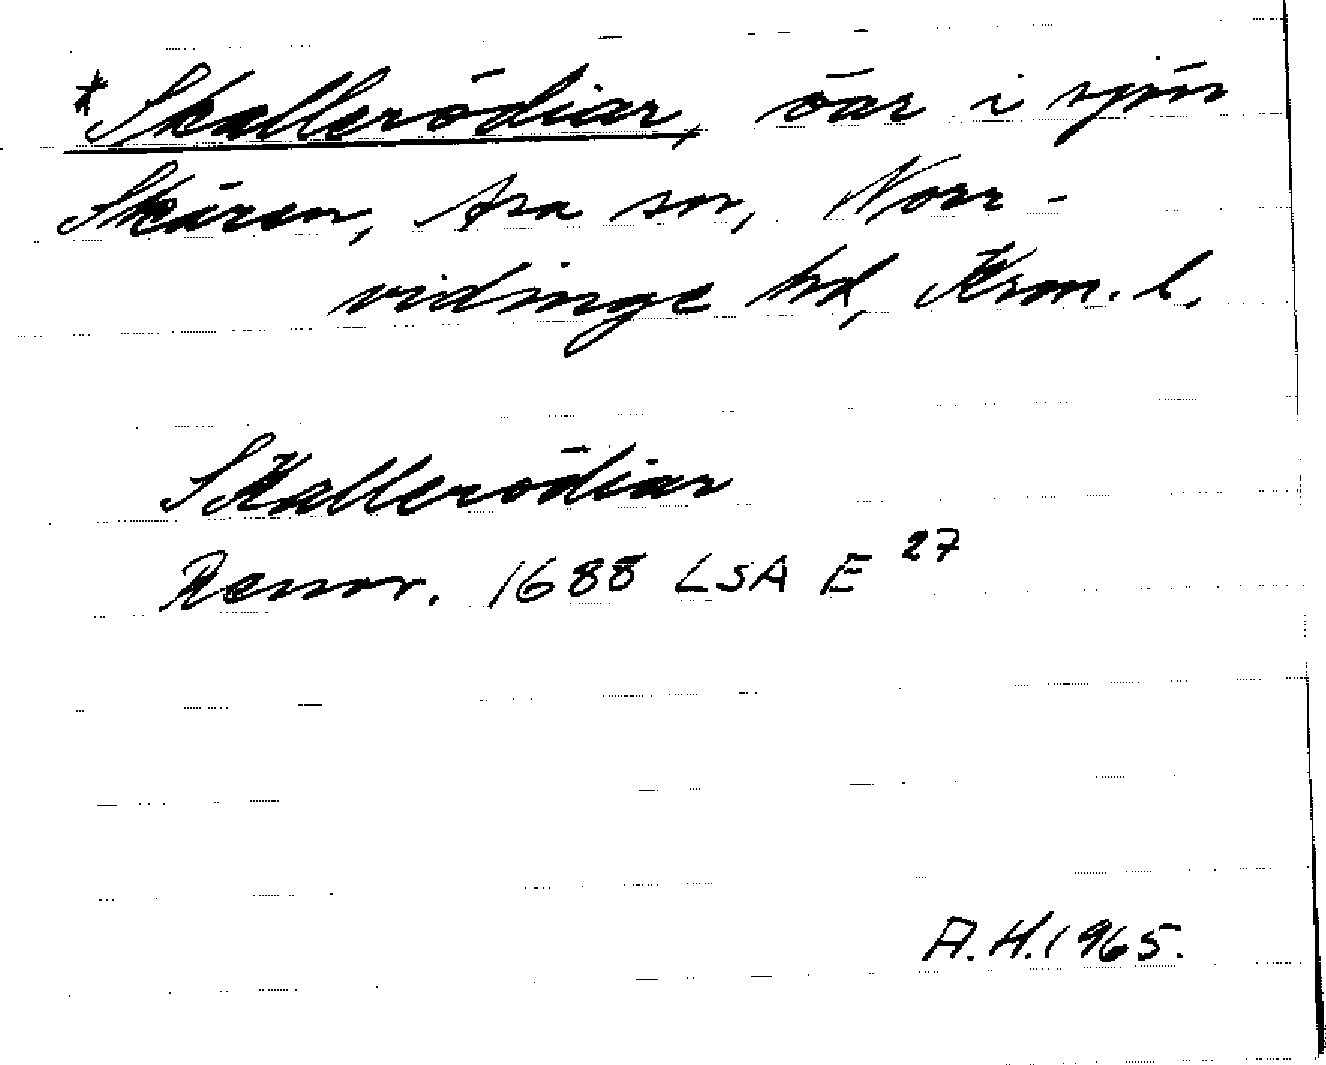 *Skallerödiar, öar i sjön
Skären, Asa sn, Norr-
vidinge hd, Kron. l.
Skallerödiar
Renov. 1688 LSA E 27
A.H. 1965.